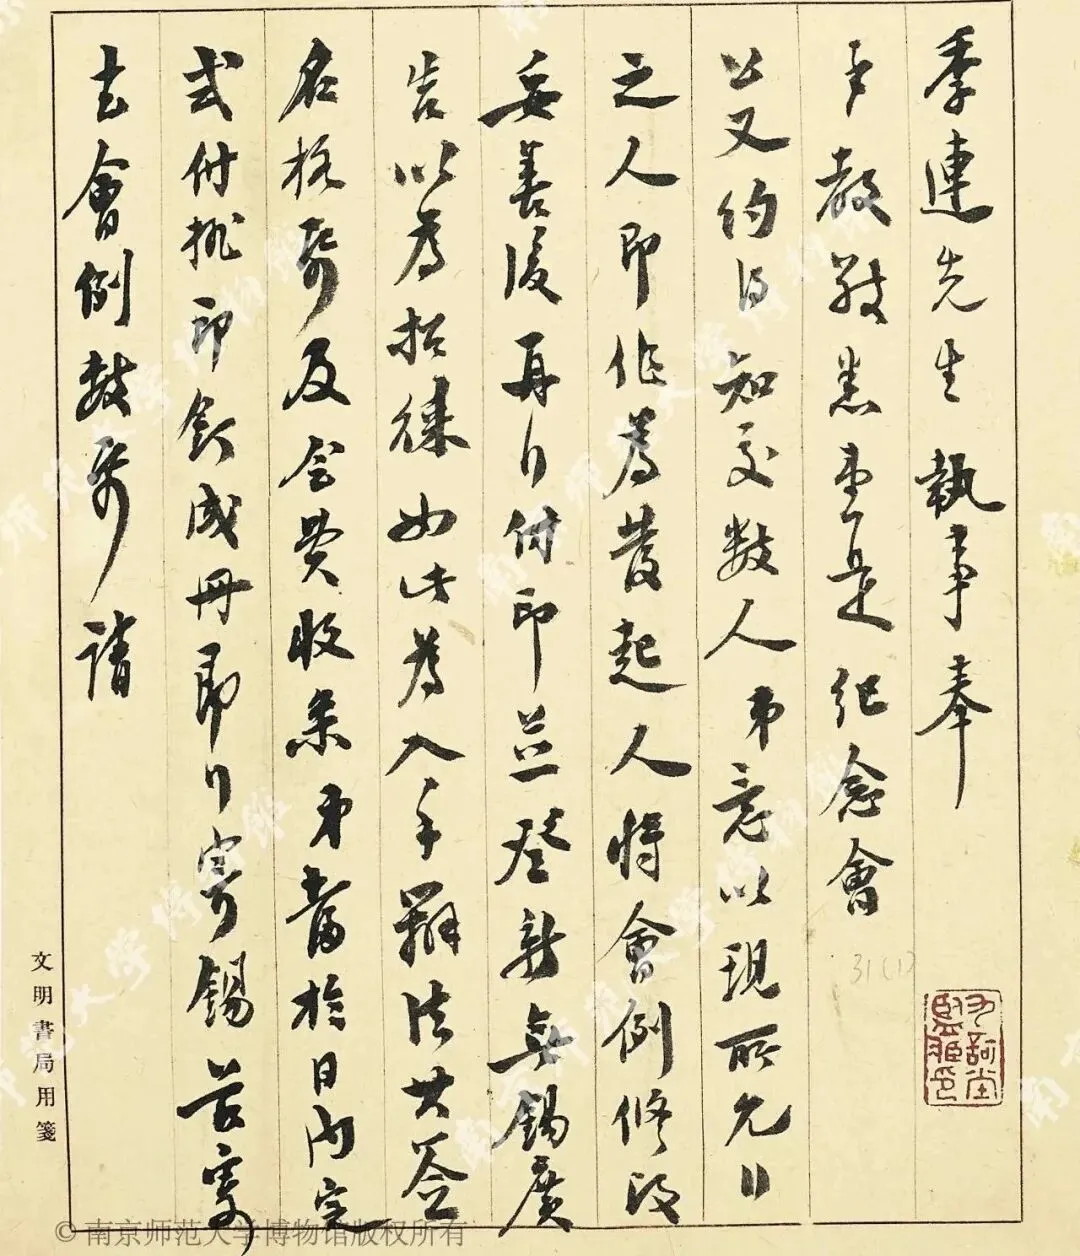 季連先生執事奉
手教敬悉壹是紀念會
公又約得知交數人弟意以現所允日
之人即作為發起人將會例修改
妥善後再日付印並登新無錫廣
告以為招徠如此為入手辦法其簽
名格帋及會費收条弟當於日內定
式付排印訂成冊即日寄錫茲寄
去會例數帋請
文明書局用箋
31(1)
© 南京师范大学博物馆版权所有